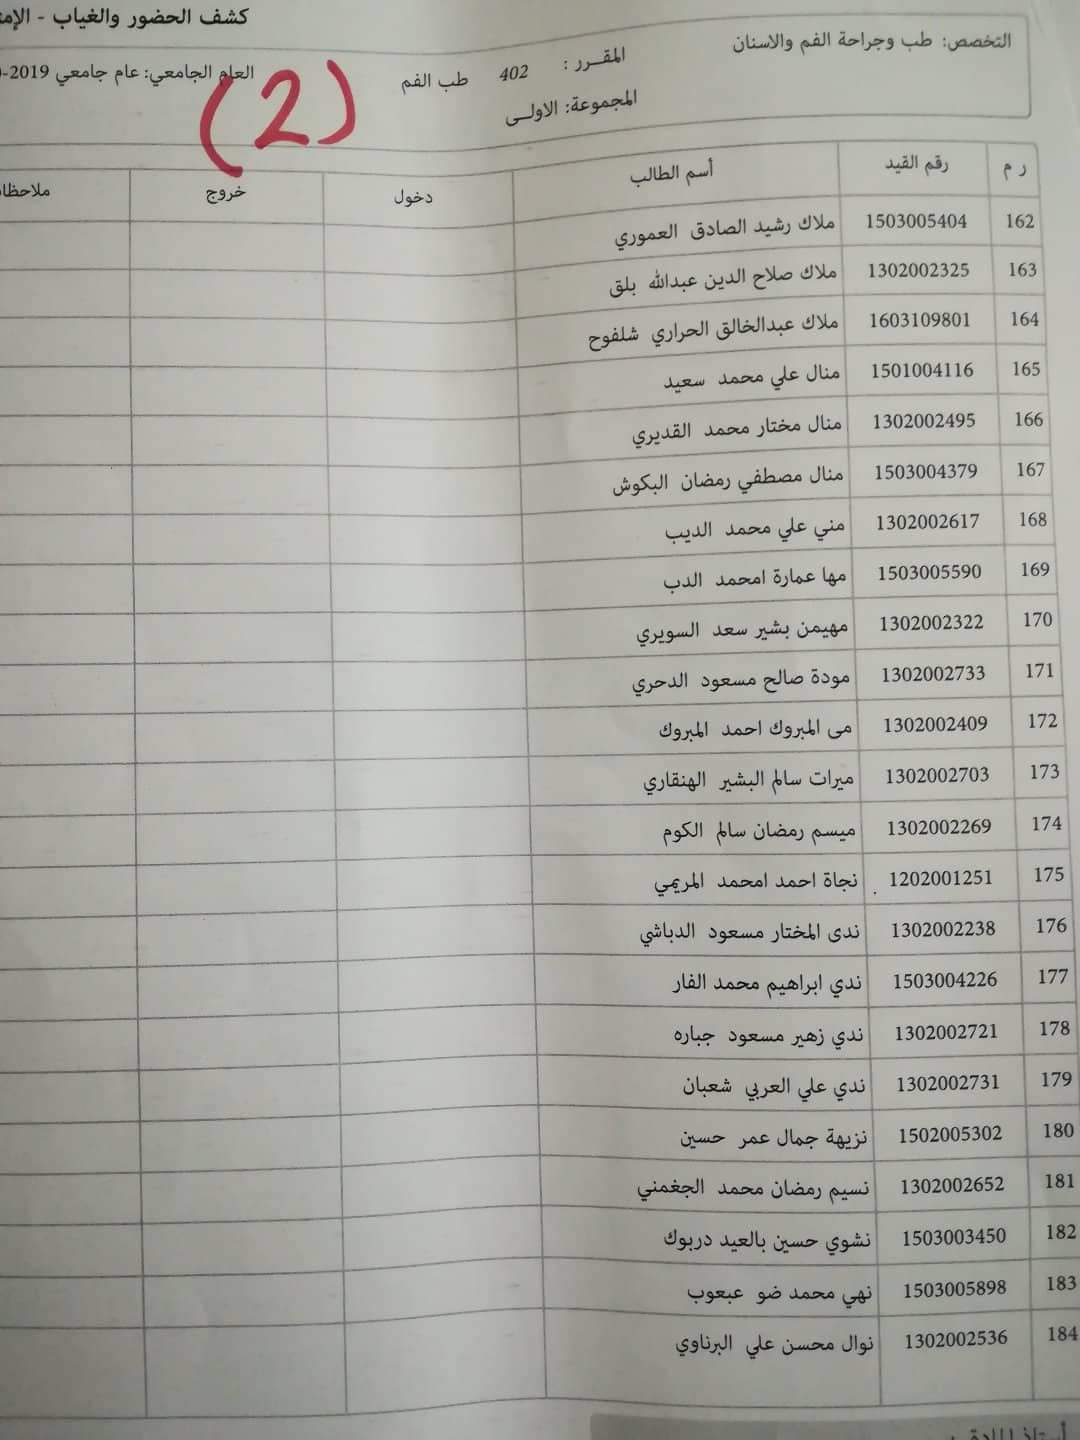 كشف الحضور والغياب -
التخصص: طب وجراحة الفم والاسنان
المقـرر : 402 طب الفم
العام الجامعي: عام جامعي 2019-
المجموعة: الاولـى
(2)
ر م رقم القيد أسم الطالب دخول خروج
162 1503005404 ملاك رشيد الصادق العموري
163 1302002325 ملاك صلاح الدين عبدالله بلق
164 1603109801 ملاك عبدالخالق الحراري شلفوح
165 1501004116 منال علي محمد سعيد
166 1302002495 منال مختار محمد القديري
167 1503004379 منال مصطفي رمضان البكوش
168 1302002617 مني علي محمد الديب
169 1503005590 مها عمارة امحمد الدب
170 1302002322 مهيمن بشير سعد السويري
171 1302002733 مودة صالح مسعود الدحري
172 1302002409 مى المبروك احمد المبروك
173 1302002703 ميرات سالم البشير الهنقاري
174 1302002269 ميسم رمضان سالم الكوم
175 1202001251 نجاة احمد امحمد المريمي
176 1302002238 ندى المختار مسعود الدباشي
177 1503004226 ندي ابراهيم محمد الفار
178 1302002721 ندي زهير مسعود جباره
179 1302002731 ندي علي العربي شعبان
180 1502005302 نزيهة جمال عمر حسين
181 1302002652 نسيم رمضان محمد الجغمني
182 1503003450 نشوي حسين بالعيد دربوك
183 1503005898 نهي محمد ضو عبعوب
184 1302002536 نوال محسن علي البرناوي